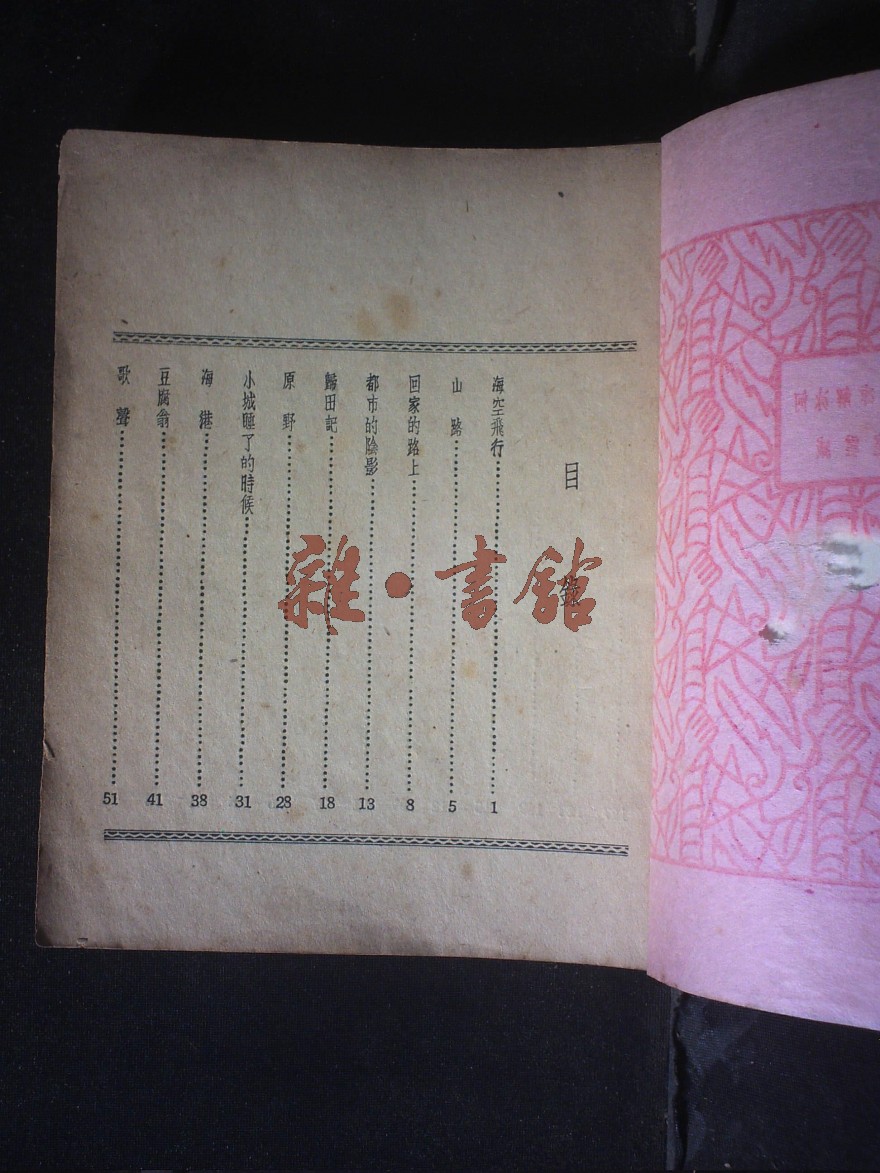 目錄
海空飛行 1
山路 5
回家的路上 8
都市的陰影 13
歸田記 18
原野 28
小城睡了的時候 31
海港 38
豆腐翁 41
歌聲 51
雜·書館